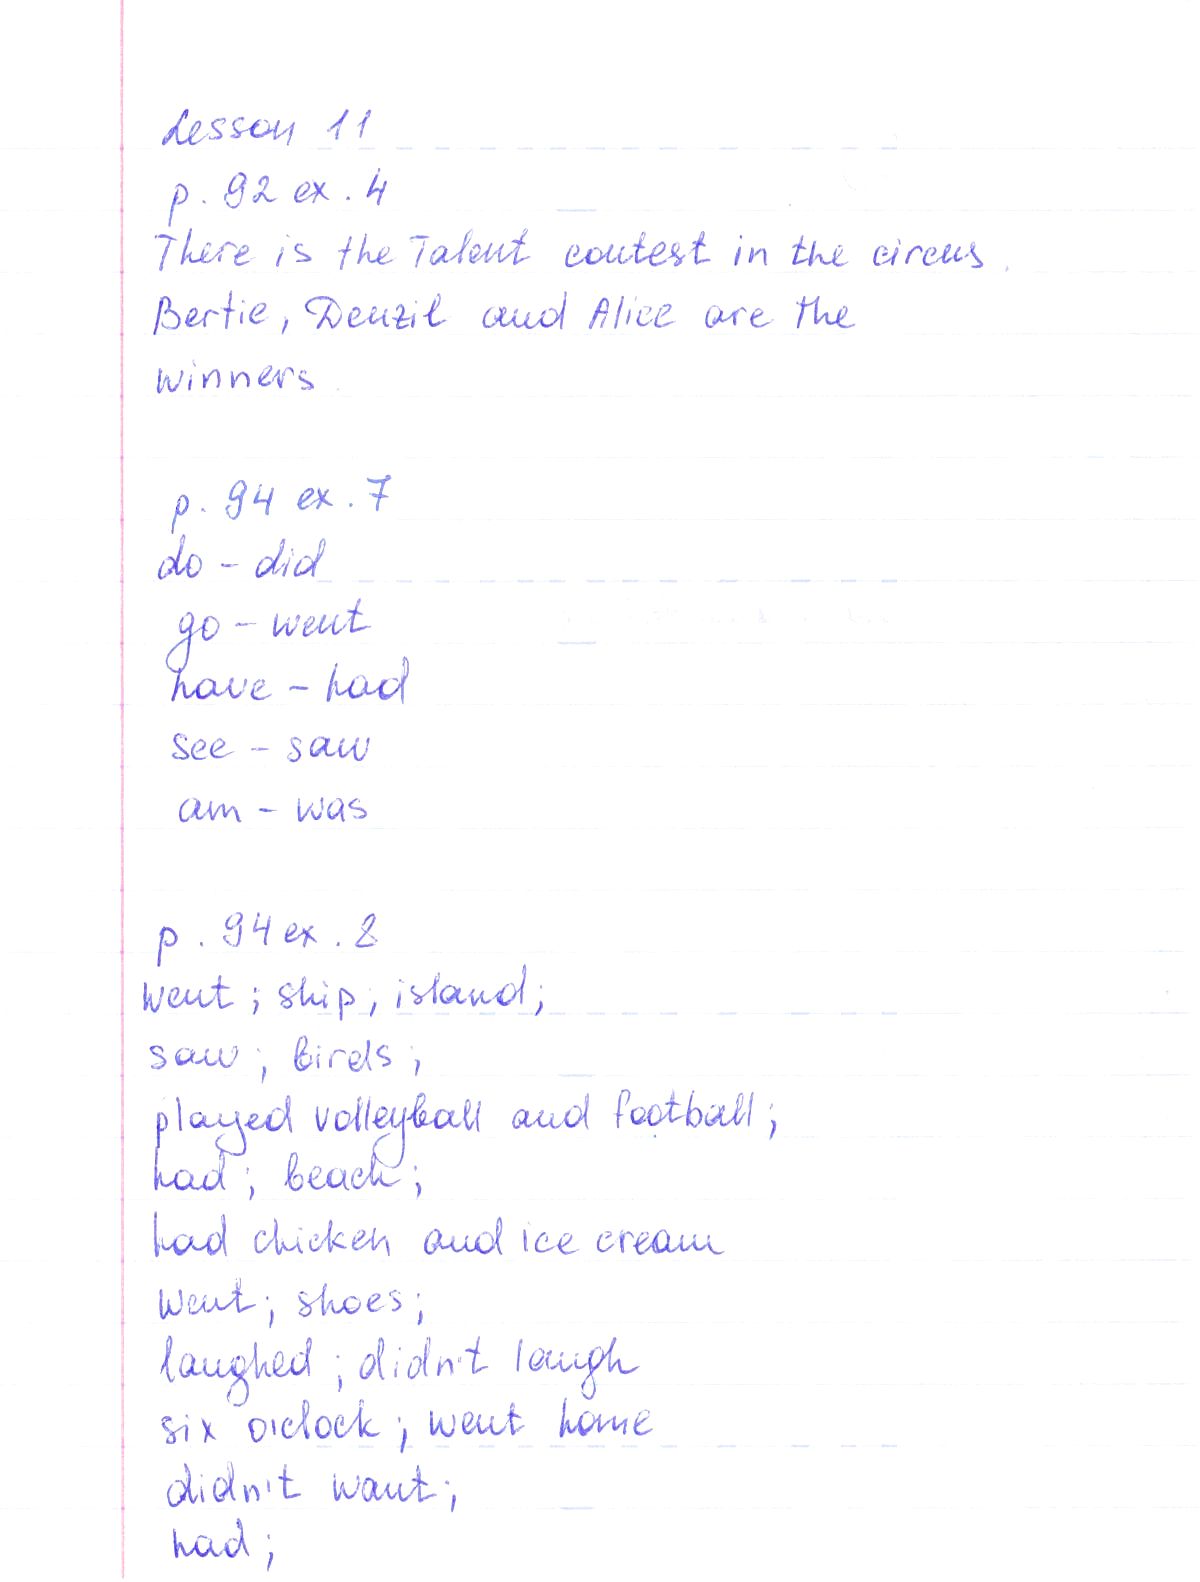 Lesson 11
p. 92 ex. 4
There is the Talent contest in the circus.
Bertie, Denzil and Alice are the
winners.
p. 94 ex. 7
do - did
go - went
have - had
see - saw
am - was
p. 94 ex. 8
went; ship; island;
saw; birds;
played volleyball and football;
had; beach;
had chicken and ice cream
went; shoes;
laughed; didn't laugh
six o'clock; went home
didn't want;
had;